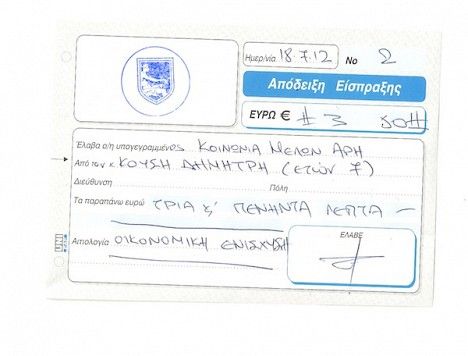 Ημερ/νία 18.7.12 No 2
Απόδειξη Είσπραξης
ΕΥΡΩ € # 3 50#
Έλαβα ο/η υπογεγραμμένος ΚΟΙΝΩΝΙΑ ΜΕΛΩΝ ΑΡΗ
Από τον κ ΚΟΥΣΗ ΔΗΜΗΤΡΗ (ΕΤΩΝ 7)
Διεύθυνση Πόλη
Τα παραπάνω ευρώ ΤΡΙΑ ς' ΠΕΝΗΝΤΑ ΛΕΠΤΑ —
Αιτιολογία ΟΙΚΟΝΟΜΙΚΗ ΕΝΙΣΧΥΣΗ
ΕΛΑΒΕ